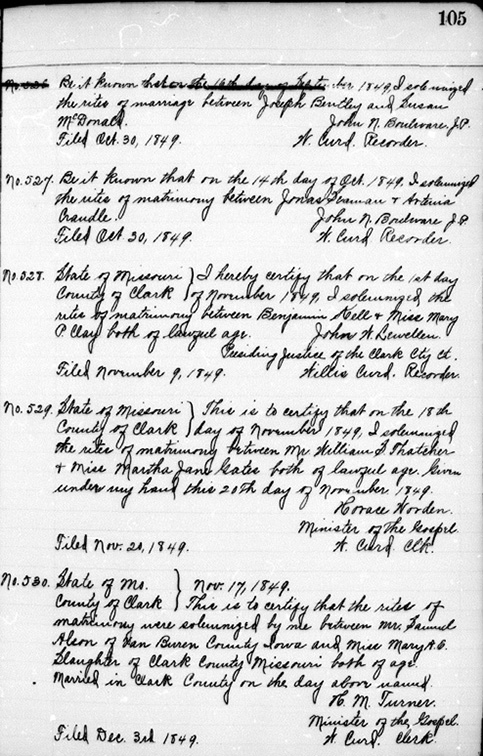 105
No. 526. Be it known that on the 16th day of September 1849, I solemnized
the rites of marriage between Joseph Bentley and Susan
McDonald. John N. Boulware, J.P.
Filed Oct. 30, 1849. W. Curd. Recorder.
No. 527. Be it known that on the 14th day of Oct. 1849, I solemnized
the rites of matrimony between Jonas Seaman & Artimia
Crandle. John N. Boulware J.P.
Filed Oct. 30, 1849. W. Curd Recorder.
No. 528. State of Missouri } I hereby certify that on the 1st day
County of Clark } of November 1849, I solemnized the
rites of matrimony between Benjamin Hell & Miss Mary
P. Clay both of lawful age. John W. Lewellen.
Presiding Justice of the Clark Cty Ct.
Filed November 9, 1849. Willis Curd. Recorder.
No. 529. State of Missouri } This is to certify that on the 18th
County of Clark } day of November 1849, I solemnized
the rites of matrimony between Mr. William F. Thatcher
& Miss Martha Jane Gates both of lawful age. Given
under my hand this 20th day of November. 1849.
Horace Worden.
Minister of the Gospel.
Filed Nov. 20, 1849. W. Curd. Clk.
No. 530. State of Mo. } Nov. 17, 1849.
County of Clark } This is to certify that the rites of
matrimony were solemnized by me between Mr.
Alson of Van Buren County, Iowa and Miss Mary A. C.
Slaughter of Clark County Missouri both of age.
Married in Clark County on the day above named.
H. M. Turner.
Minister of the Gospel.
Filed Dec. 3rd 1849. W. Curd. Clerk.